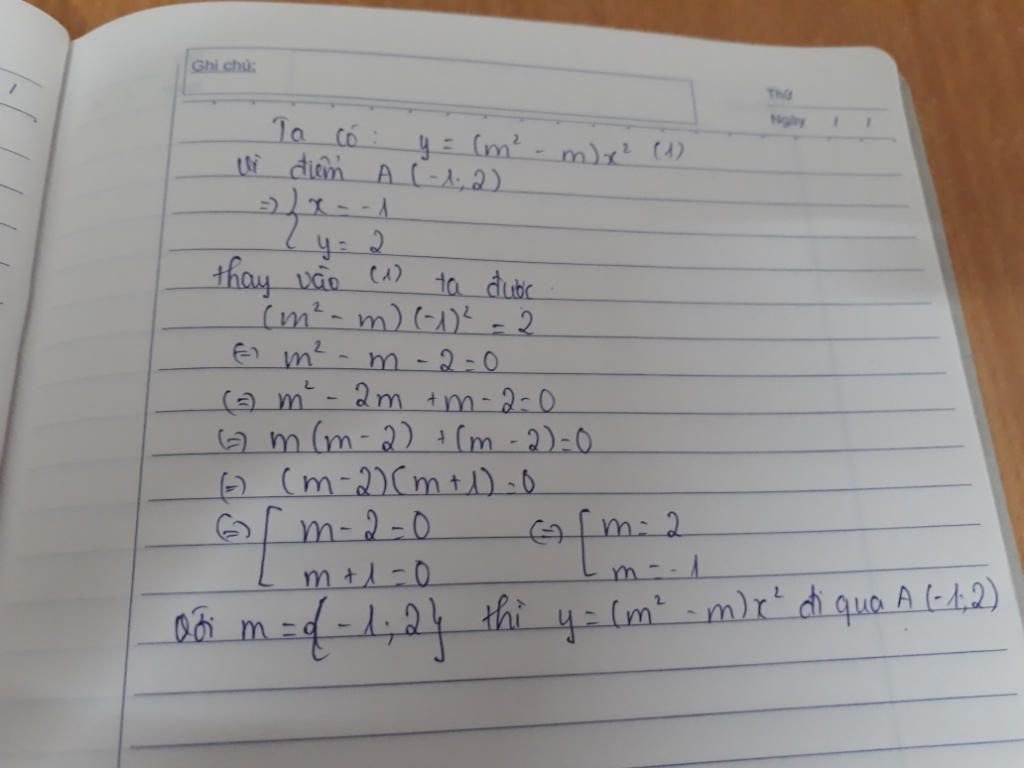 Ghi chú:
Thứ
Ngày / /
Ta có: y = (m² - m)x² (1)
Vì điểm A (-1; 2)
=> { x = -1
y = 2
thay vào (1) ta được
(m² - m) (-1)² = 2
(=) m² - m - 2 = 0
(=) m² - 2m + m - 2 = 0
(=) m (m - 2) + (m - 2) = 0
(=) (m - 2)(m + 1) = 0
(=) [ m - 2 = 0 (=) [ m = 2
m + 1 = 0 m = -1
Với m = {-1; 2} thì y = (m² - m)x² đi qua A (-1; 2)